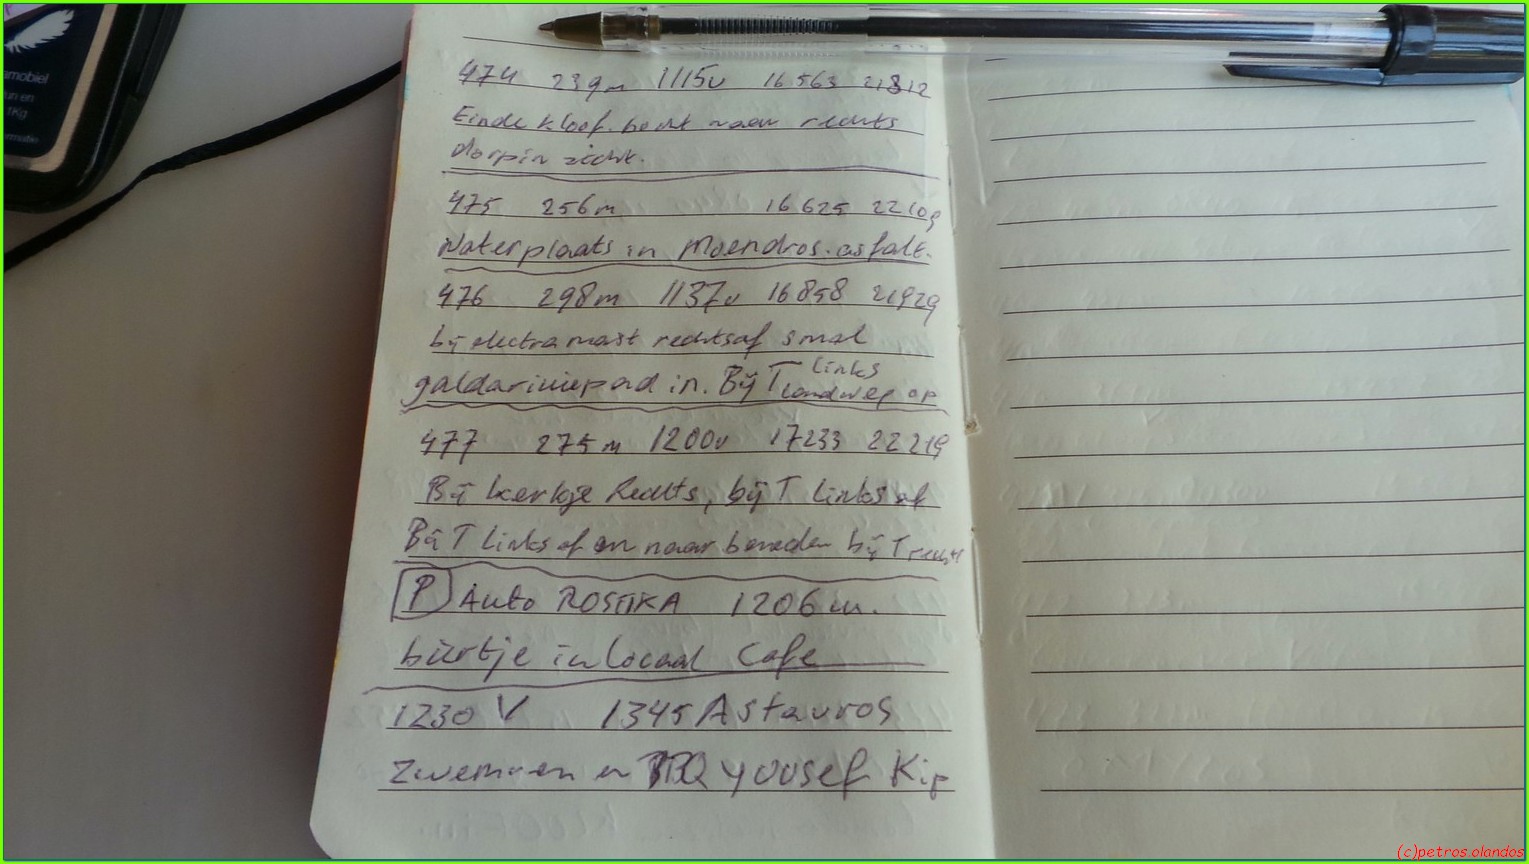 amobiel
un en
1Kg
ormatie
474 239m 1115v 16563 21812
Einde kloof. bocht naar rechts
dorp in zicht.
475 256m 16625 22109
Waterplaats in Maendros. asfalt.
476 298m 1137v 16858 21929
bij electramast rechtsaf smal
galdariniepad in. Bij T links
landweg op
477 275m 1200v 17233 22219
Bij kerkje Rechts, bij T links af
Bij T links af en naar beneden bij T rechts
P Auto ROSTIKA 1206 m.
biertje in locaal Cafe
1230 V 1345 A Stavros
Zwemmen en BBQ yousef Kip
(c)petros olandos